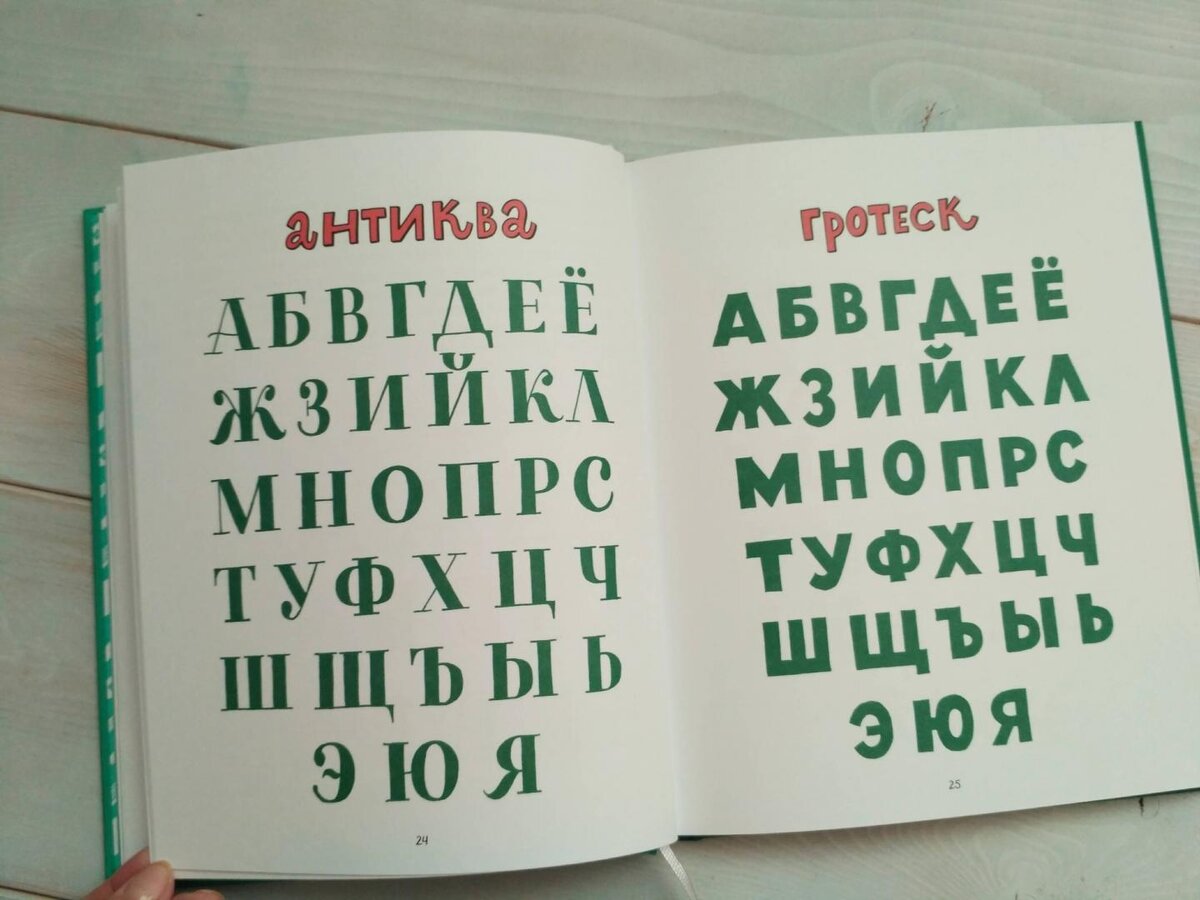 антиква
АБВГДЕЁ
ЖЗИЙКЛ
МНОПРС
ТУФХЦЧ
ШЩЪЫЬ
ЭЮЯ
24
гротеск
АБВГДЕЁ
ЖЗИЙКЛ
МНОПРС
ТУФХЦЧ
ШЩЪЫЬ
ЭЮЯ
25